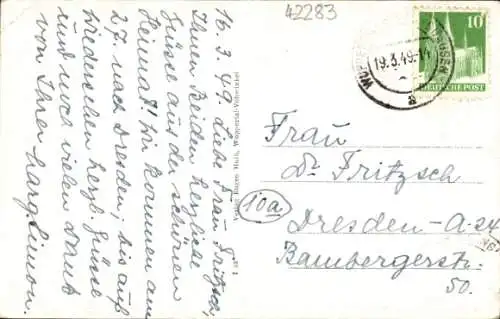 42283
16. 3. 49. Liebe Frau Fritzsch,
Ihnen Beiden herzliche
Grüsse aus der schönen
Heimat! Wir kommen am
27. nach Dresden, bis auf
Wiedersehen herzl. Grüsse
und noch vielen Dank
von Ihren Marg. Simon.
19.3.49.-14
a
10
DEUTSCHE POST
Frau
Dr. Fritzsch
10a
Dresden-A-24
Bambergerstr.
50.